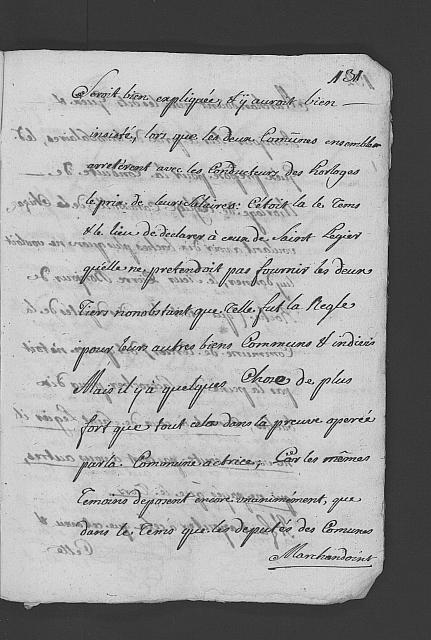 131
Seroit bien expliquée, et y auroit bien
insisté, lors que les deux Comûnes ensembles
arretérent avec les Conducteurs des horloges
le prix de leurs salaires: C'etoit la le Tems
& le lieu de declarer à ceux de Saint Legier
qu'elle ne pretendoit pas fournir les deux
Tiers nonobstant que Telle fut la Regle
pour leurs autres biens Communs & indivis
Mais il y a quelques Chose de plus
fort que tout cela dans la preuve operée
par la Commune actrice; Car les mêmes
Temoins deposent encore unanimement, que
dans le Tems que les deputés des Comunes
Marchandoint